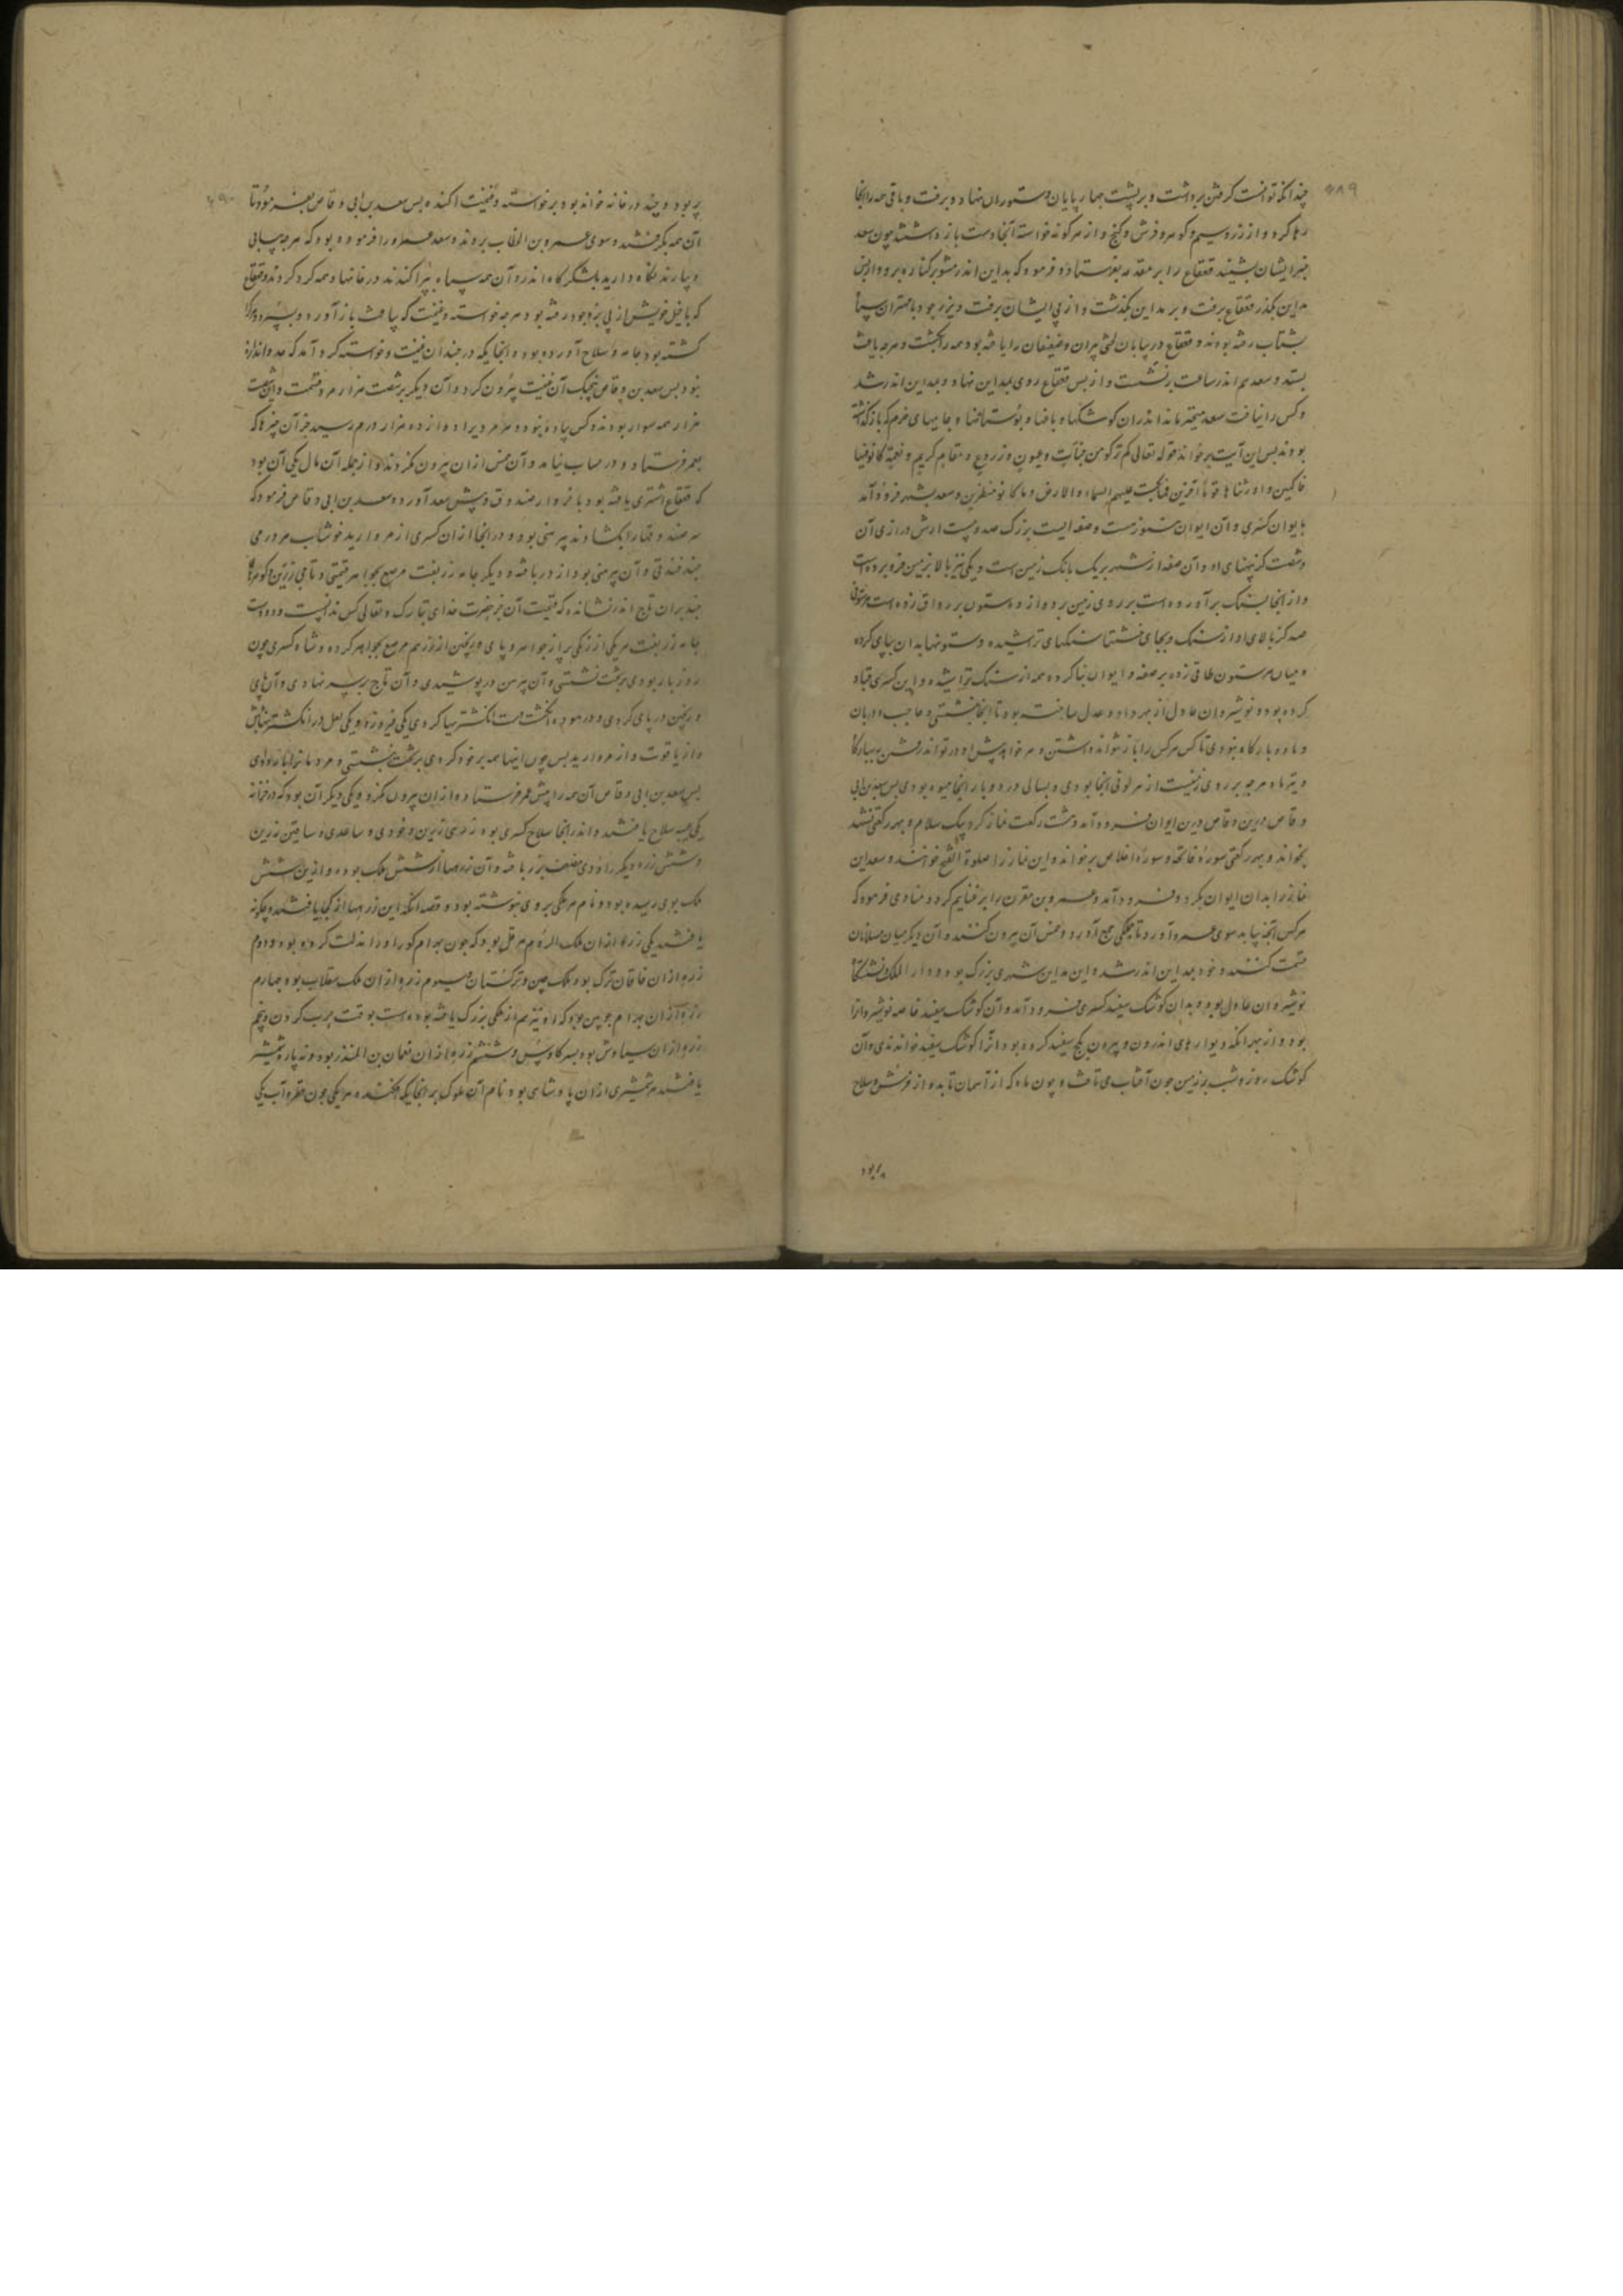 ۴۸۹
چندانکه توانست کرفتن برداشت و بر پشت چهار پایان و ستوران نهاد و برفت و باقی همه را آنجا
رها کرد و از زر و سیم و کوهر و فرش و کنج و از هر کونه خواسته آنجا دست باز داشتند چون سعد
خبر ایشان بشنید قعقاع را بر مقدمه بفرستاد و فرمود که بداین اندر مشو بر کناره برو و از پس
مداین بکذر قعقاع برفت و بر مداین بکذشت و از پی ایشان برفت و یزدجرد با مهتران سپاه
بشتاب رفته بودند و قعقاع در بیابان لختی پیران و ضعیفان را یافته بود همه را بکشت و هرچه یافت
بستد و سعد هم اندر ساعت برنشست و از پس قعقاع روی بمداین نهاد و بمداین اندر شد
و کس را نیافت سعد متحیر ماند اندران کوشکها و باغها و بوستانها و جایهای خرم که باز کذاشته
بودند پس این آیت برخواند قوله تعالی کم ترکوا من جنات و عیون و زروع و مقام کریم و نعمة کانوا فیها
فاکهین و اورثناها قوماً آخرین فما بکت علیهم السماء و الارض و ما کانوا منظرین و سعد بشهر فرود آمد
بایوان کسری و آن ایوان هنوز هست و صفه ایست بزرک صد و بیست ارش درازی آن
و شصت کز پهنای او و آن صفه از شهر بر یک بانک زمین است و یکی نیز بالا بزمین فرو برده است
و از آنجا بسنک برآورده است بر روی زمین بر دوازده ستون بر رواق زده است هر ستونی
صد کز بالای او از سنک و بجای خشتها سنکهای تراشیده و ستونها بدان بپای کرده
و میان هر ستون طاقی زده بر صفه و ایوان بنا کرده همه از سنک تراشیده و این کسری قباد
کرده بود و نوشیروان عادل از بهر داد و عدل ساخته بود تا آنجا بنشستی و حاجب و دربان
و پرده و بارکاه نبودی تا کس هر کس را باز نتواند داشتن و هر خواهد پیش او در تواند رفتن بهنکام
و تیر ماه هرچه بر روی زمینست از هر لونی آنجا بودی و بسالی در دوبار آنجا میوه بودی پس سعد بن ابی
وقاص درین ایوان فرود آمد و هشت رکعت نماز کرد بیک سلام و بهر رکعتی تشهد
بخواند و بهر رکعتی سورة فاتحه و سورة اخلاص برخواند و این نماز را صلوة الفتح خوانند و سعد این
نماز را بدان ایوان بکرد و فرود آمد و عمرو بن مقرن را بر غنایم کرد و منادی فرمود که
هر کس آنچه بیابد سوی عمرو آورد تا بجملکی جمع آورد و خمس آن بیرون کنند و آن دیکر میان مسلمانان
قسمت کنند و خود بمداین اندر شد و این مداین شهری بزرک بود و دار الملک و نشستکاه
نوشیروان عادل بود و بدان کوشک سپید کسری فرود آمد و آن کوشک سپید خاصه نوشیروان را
بود و از بهر آنکه دیوارهای اندرون و بیرون بکچ سپید کرده بود آنرا کوشک سپید خواندندی و آن
کوشک روز و شب بر زمین چون آفتاب می تافت و چون ماه که از آسمان تابد و از فرش و سلاح
پر بود
۴۹۰
پر بود و چند در خانه خواند بود بر خواسته و غنیمت اکنده پس سعد بن ابی وقاص بفرمود تا
آن همه بکرفتند و سوی عمر بن الخطاب بردند و سعد عمرو را فرموده بود که هرچه بیابی
و بیارند نکاه دارید بلشکرکاه اندر و آن همه سپاه بپراکندند در خانها و همه کرد کردند و قعقاع
که با خیل خویش از پی یزدجرد رفته بود هرچه خواسته و غنیمت که یافت باز آورد و بسپرد و هرکرا
کشته بود جامه و سلاح آورده بود و آنجایکه در چندان غنیمت و خواسته کرد آمد که حد و اندازه
نبود پس سعد بن وقاص پنج یک آن غنیمت بیرون کرد و آن دیکر بر شصت هزار مرد قسمت و این شصت
هزار همه سوار بودند و کس پیاده نبود و هر مردیرا دوازده هزار درم رسید جز آن چیزها که
بعمر فرستاد و در حساب نیامد و آن خمس از ان بیرون نکردند و از جمله آن مال یکی آن بود
که قعقاع اشتری یافته بود با خروار صندوق و پیش سعد آورد و سعد بن ابی وقاص فرمود که
سر صندوقها را بکشادند پیرهنی بود و در آنجا از ان کسری از مروارید خوشاب هر دری
چند فندقی و آن پیرهنی بود از در بافته و دیکر جامه زربفت مرصع بجواهر قیمتی و تاجی زرین و کوهرها
چند بران تاج اندر نشانده که قیمت آن جز حضرت خدای تبارک و تعالی کس ندانست و ده دست
جامه زربفت هر یکی از زنکی پر از جواهر و پای ورنجن از زر هم مرصع بجواهر کرده و شاه کسری چون
روز بار بودی بر تخت نشستی و آن پیرهن در پوشیدی و آن تاج بر سر نهادی و آن پای
ورنجن در پای کردی و در هر ده انکشت دست انکشتریها کردی یکی فیروزه و یکی لعل در انکشتر بنفش
و از یاقوت و از مروارید پس چون اینها همه بر خود کردی بر تخت بنشستی و مردمانرا بار دادی
پس سعد بن ابی وقاص آن همه را پیش عمر فرستاد و از ان بیرون نکرد و یکی دیکر آن بود که در خزانه
یکی عیبه سلاح یافتند و اندر آنجا سلاح کسری بود زرهی زرین و خودی و ساعدی و ساقین زرین
و شش زره دیکر داودی مضعف بزر بافته و آن زرهها از شش ملک بوده و از این شش
ملک بوی رسیده بود و نام هر یکی بر وی نبوشته بود و قصه آنکه این زرهها از کجا یافتند و چکونه
یافتند یکی زره از ان ملک الروم هرقل بود که چون بهرام کور او را مذلت کرده بود و دوم
زره از ان خاقان ترک بود ملک چین و ترکستان و سیوم زره از ان ملک سقلاب بود چهارم
زره از ان بهرام چوبین بود که او نیز هم از ملکی بزرک یافته بوده است بوقت حرب کردن و پنجم
زره از ان سیاوش بود پسر کاوس و ششم زره از ان نعمان بن المنذر بود و نه پاره شمشیر
یافتند هر شمشیری از ان پادشاهی بود نام آن ملوک بر آنجایکه کنده هر یکی چون قطره آب یکی